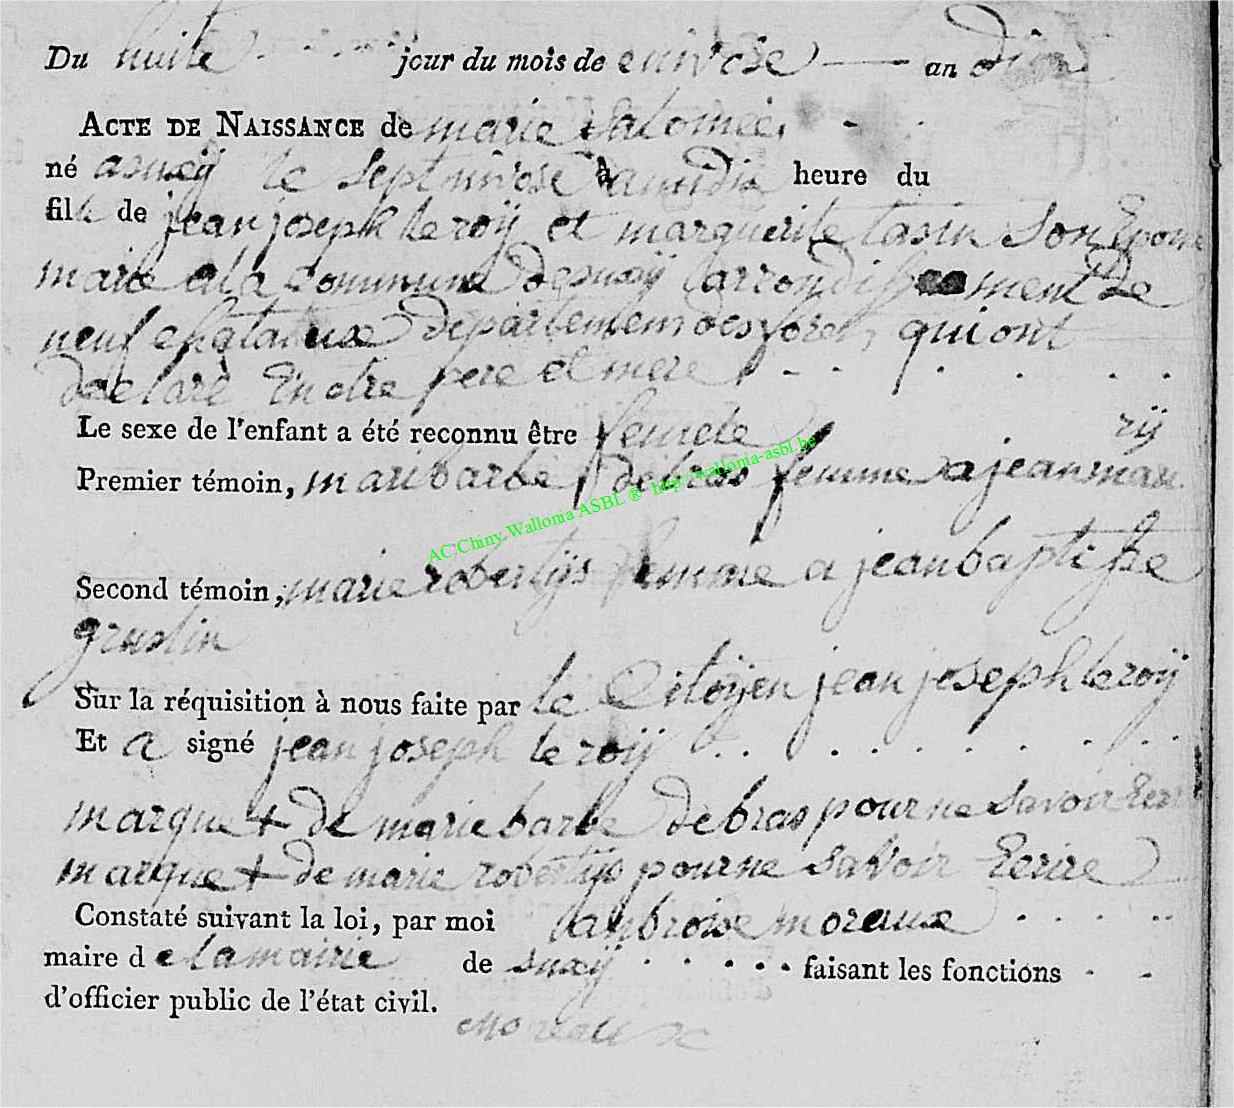 Du huite jour du mois de enivose an dix
ACTE DE NAISSANCE de marie Salomée
né asuxÿ le Sept nivose à a midis heure du
fille de jean joseph le roÿ et marguerite tasin Son Epouse
marié ala commune de suxÿ arrondissement de
neufchataux departement des foret qui ont
declaré Enetre pere et mere
Le sexe de l'enfant a été reconnu être femele
rÿ
Premier témoin, maribarbe debras femme a jean mari
AC Chiny Wallonia ASBL ® http://wallonia-asbl.be
Second témoin, marie robertÿs femme a jean baptiste
gruslin
Sur la réquisition à nous faite par le Citoÿen jean joseph le roÿ
Et a signé jean joseph le roÿ
marque + de marie barbe debras pour ne Savoir Ecrire
marque + de marie robertÿs pour ne savoir Ecrire
Constaté suivant la loi, par moi ambroise moreaux
maire de la mairie de suxÿ faisant les fonctions
d'officier public de l'état civil.
Moreaux